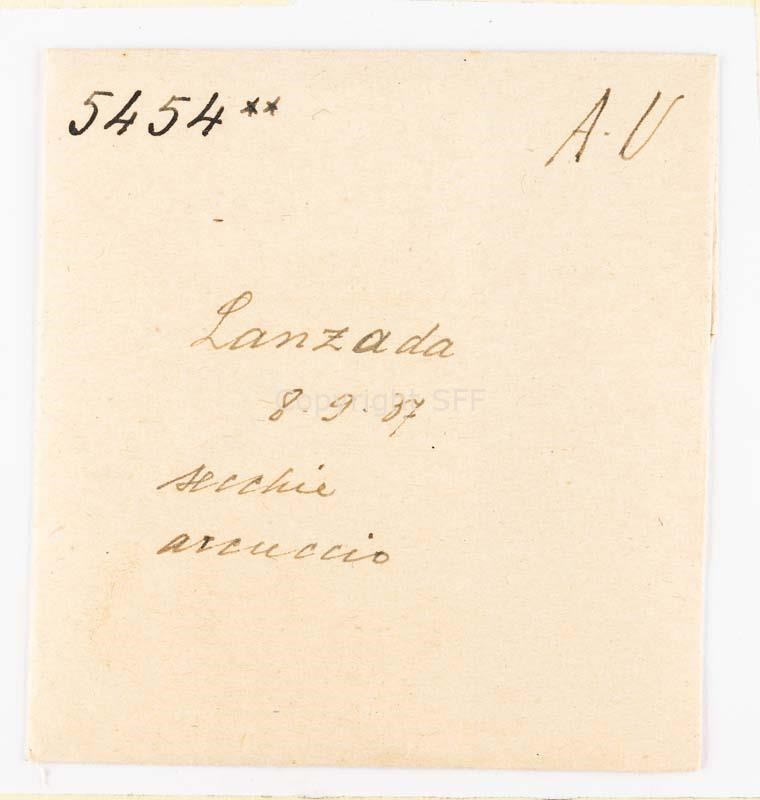 5454** A. V
Lanzada
8. 9. 37
secchie
arcuccio
Copyright SFF